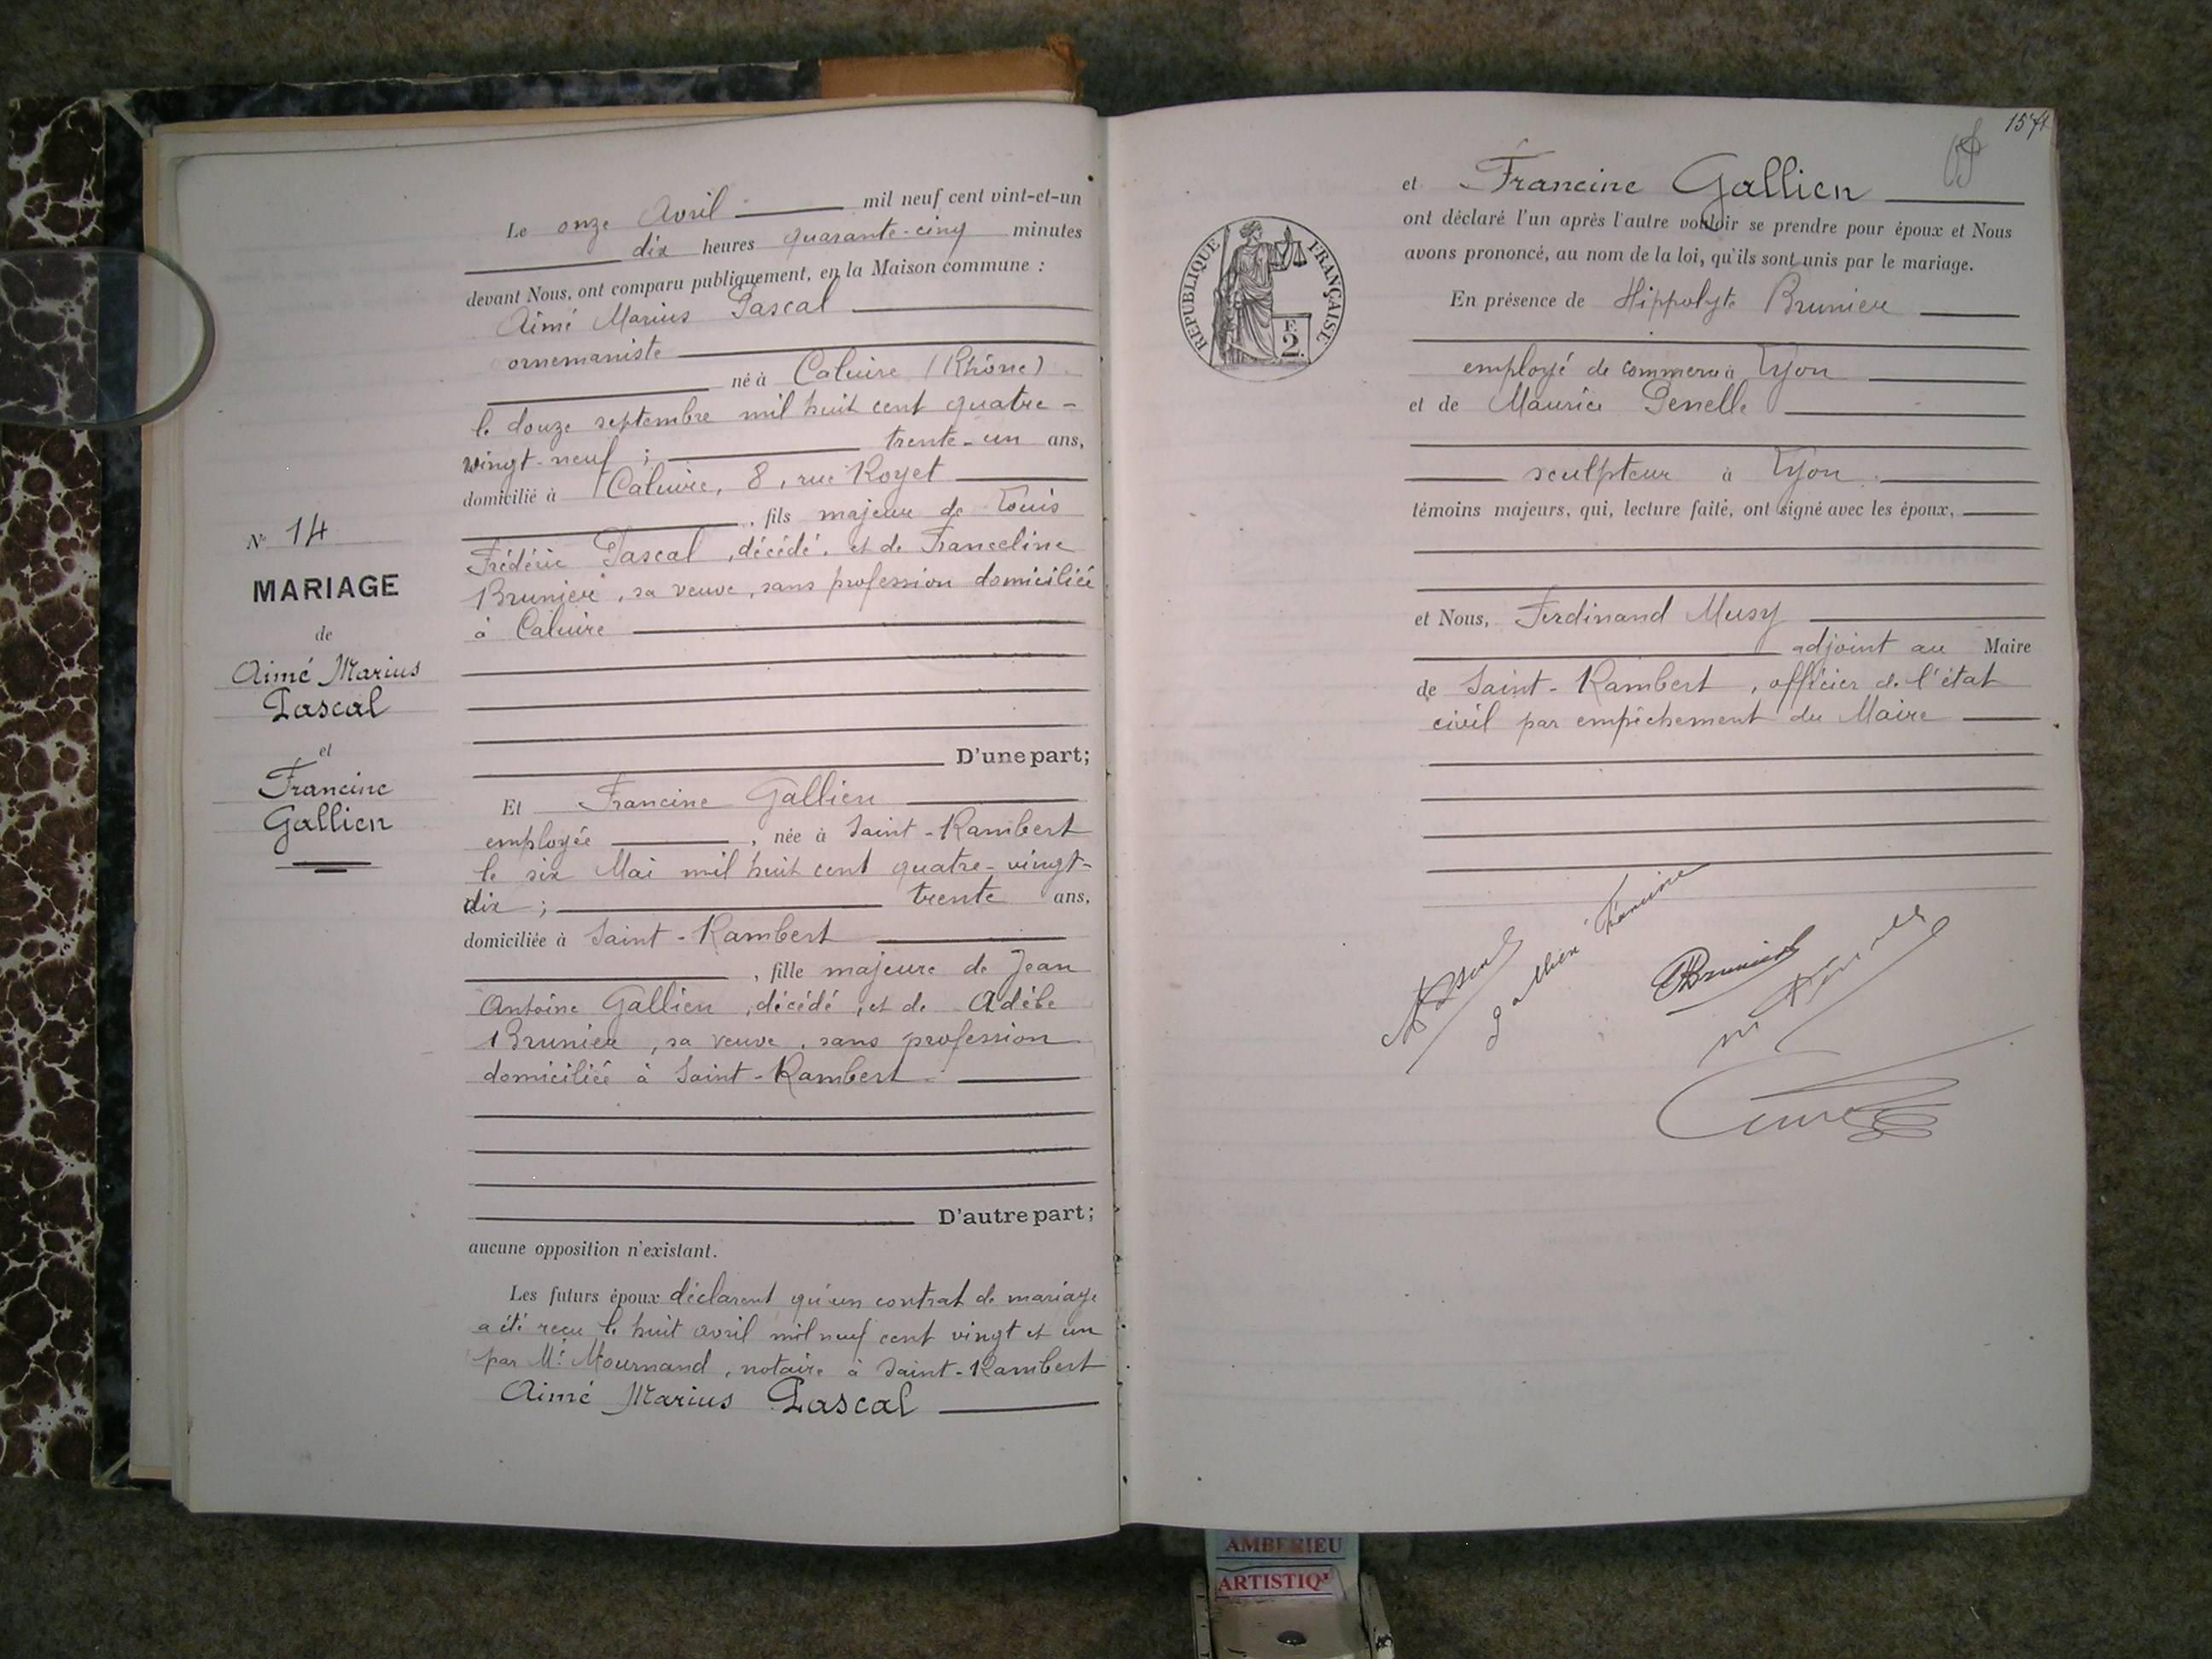 N° 14
MARIAGE
de
Aimé Marius
Pascal
et
Francine
Gallien
Le onze Avril mil neuf cent vint-et-un
dix heures quarante-cinq minutes
devant Nous, ont comparu publiquement, en la Maison commune :
Aimé Marius Pascal
ornemaniste
né à Caluire (Rhône)
le douze septembre mil huit cent quatre-
vingt-neuf ; trente-un ans,
domicilié à Caluire, 8, rue Royet
, fils majeur de Louis
Frédéric Pascal, décédé, et de Franceline
Brunier, sa veuve, sans profession domiciliée
à Caluire
D'une part;
Et Francine Gallien
employée , née à Saint-Rambert
le six Mai mil huit cent quatre-vingt-
dix ; trente ans,
domiciliée à Saint-Rambert
, fille majeure de Jean
Antoine Gallien, décédé, et de Adèle
Brunier, sa veuve, sans profession
domiciliée à Saint-Rambert
D'autre part;
aucune opposition n'existant.
Les futurs époux déclarent qu'un contrat de mariage
a été reçu le huit avril mil neuf cent vingt et un
par Me Mournand, notaire à Saint-Rambert
Aimé Marius Pascal
157
et Francine Gallien
ont déclaré l'un après l'autre vouloir se prendre pour époux et Nous
avons prononcé, au nom de la loi, qu'ils sont unis par le mariage.
REPUBLIQUE FRANÇAISE
F.
2.
En présence de Hippolyte Brunier
employé de commerce à Lyon
et de Maurice Penelle
sculpteur à Lyon
témoins majeurs, qui, lecture faite, ont signé avec les époux,
et Nous, Ferdinand Musy
adjoint au Maire
de Saint-Rambert, officier de l'état
civil par empêchement du Maire
Gallien Francine
Brunier
AMBERIEU
ARTISTIQ